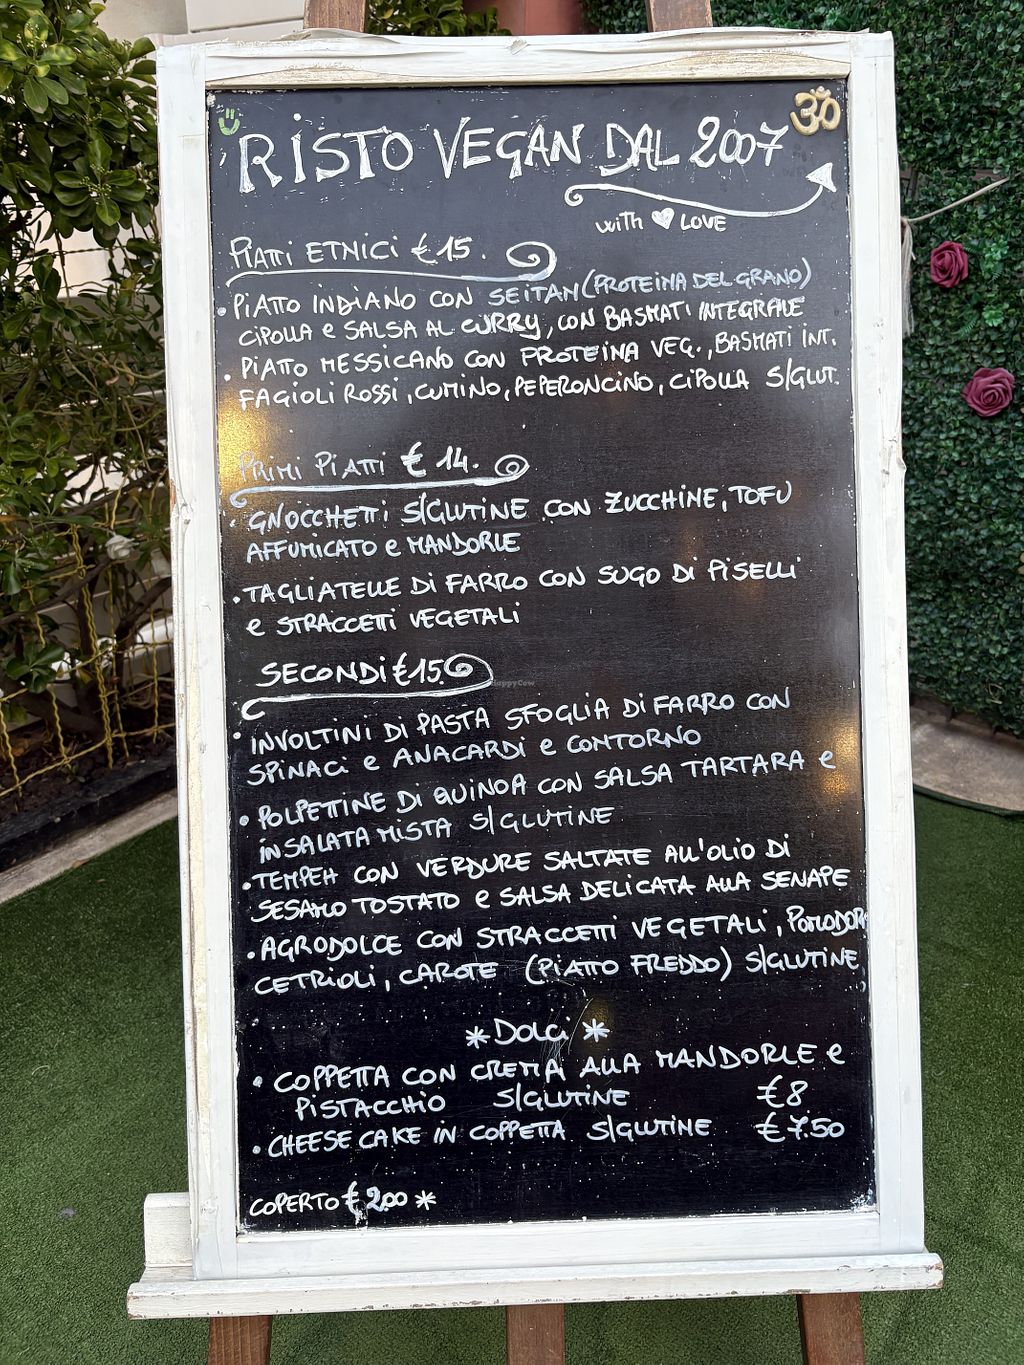 RISTO VEGAN DAL 2007
with LOVE
PIATTI ETNICI € 15.
• PIATTO INDIANO CON SEITAN (PROTEINA DEL GRANO)
CIPOLLA e SALSA AL CURRY, CON BASMATI INTEGRALE
• PIATTO MESSICANO CON PROTEINA VEG., BASMATI INT.
FAGIOLI ROSSI, CUMINO, PEPERONCINO, CIPOLLA S/GLUT.
PRIMI PIATTI € 14.
• GNOCCHETTI S/GLUTINE CON ZUCCHINE, TOFU
AFFUMICATO e MANDORLE
• TAGLIATELLE DI FARRO CON SUGO DI PISELLI
e STRACCETTI VEGETALI
SECONDI € 15.
• INVOLTINI DI PASTA SFOGLIA DI FARRO CON
SPINACI e ANACARDI e CONTORNO
• POLPETTINE DI QUINOA CON SALSA TARTARA e
INSALATA MISTA S/GLUTINE
• TEMPEH CON VERDURE SALTATE ALL'OLIO DI
SESAMO TOSTATO e SALSA DELICATA ALLA SENAPE
• AGRODOLCE CON STRACCETTI VEGETALI, POMODORI
CETRIOLI, CAROTE (PIATTO FREDDO) S/GLUTINE
* DOLCI *
• COPPETTA CON CREMA ALLA MANDORLE e
PISTACCHIO S/GLUTINE € 8
• CHEESE CAKE IN COPPETTA S/GLUTINE € 7.50
COPERTO € 2.00 *
HappyCow